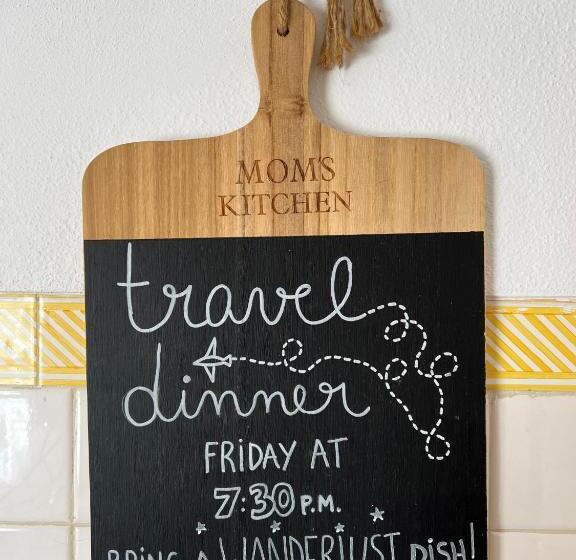 MOM'S
KITCHEN
travel
dinner
FRiDAY AT
7:30 P.M.
BRiNG A WANDERLUST DiSH!